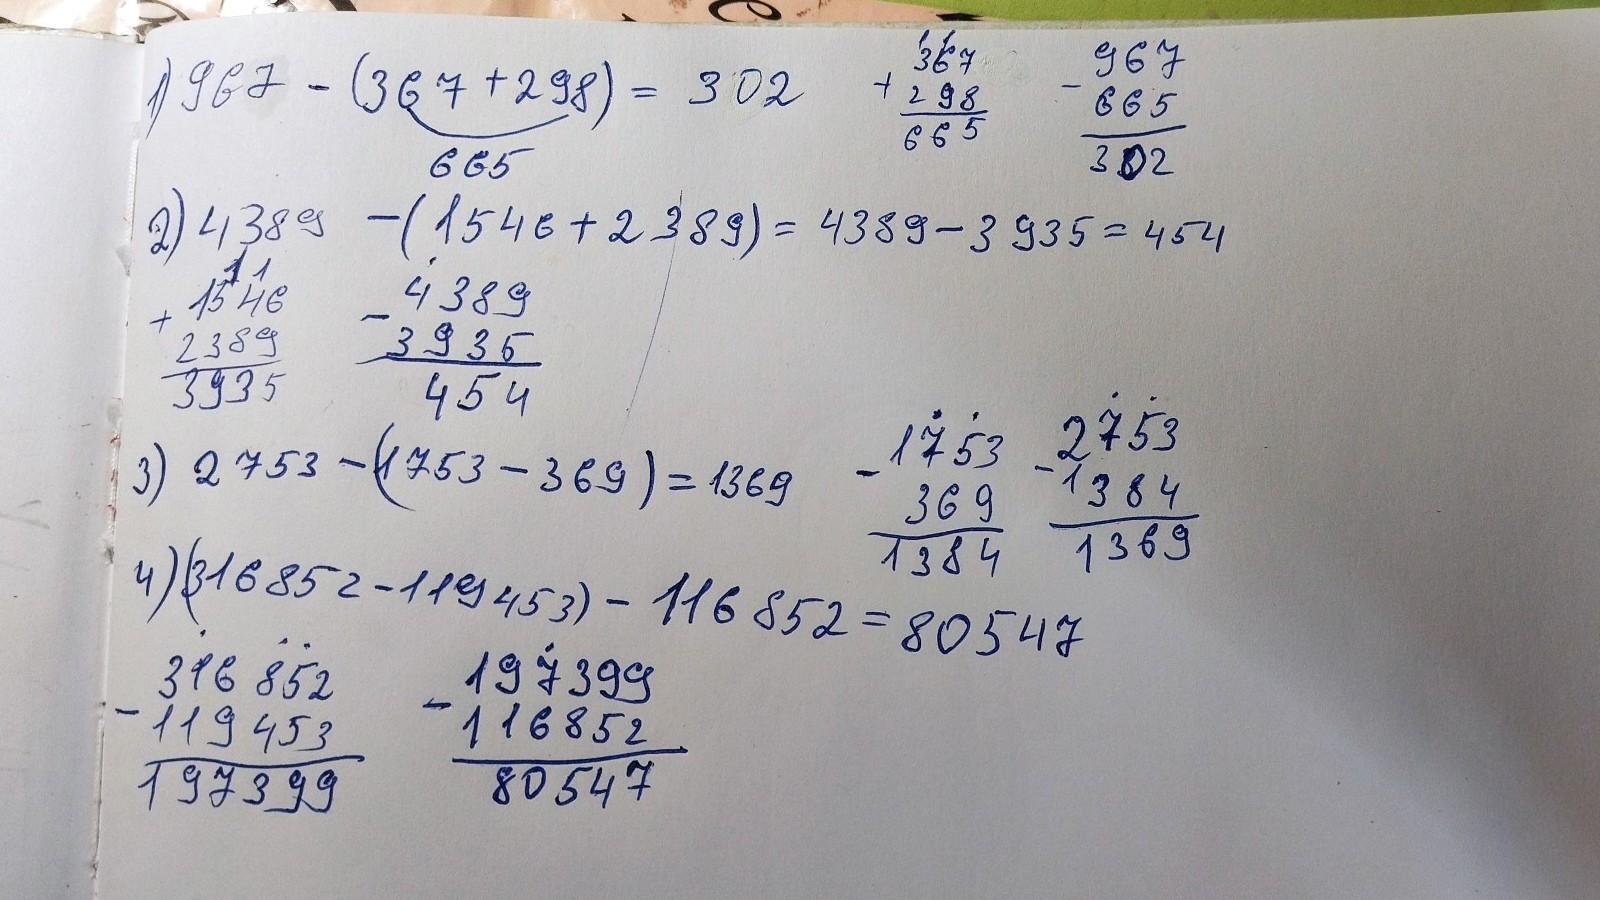 1) 967 - (367 + 298) = 302
665
11
367
+
298
665
967
-
665
302
2) 4389 - (1546 + 2389) = 4389 - 3935 = 454
11
1546
+
2389
3935
4389
-
3935
454
3) 2753 - (1753 - 369) = 1369
1753
-
369
1384
2753
-
1384
1369
4) (316852 - 119453) - 116852 = 80547
316852
-
119453
197399
197399
-
116852
80547